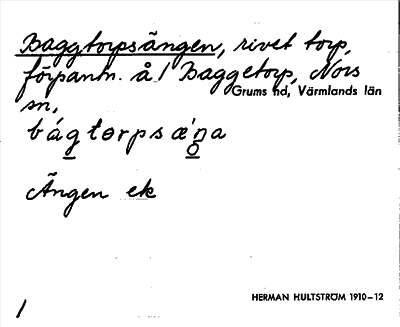 Baggtorpsängen, rivet torp,
förpantn. å / Baggetorp, Nors
Grums hd, Värmlands län
sn,
bágtorpsæ´ŋa
Ängen ek
HERMAN HULTSTRÖM 1910–12
/